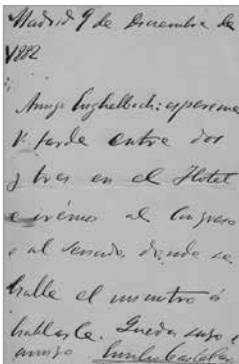 Madrid 9 de Diciembre de
1882
Amigo Enghelbech: espereme
V. tarde entre dos
y tres en el Hotel
e irémos al Congreso
o al Senado, donde se
halle el ministro á
hablarle. Queda suyo
amigo Emilio Castelar